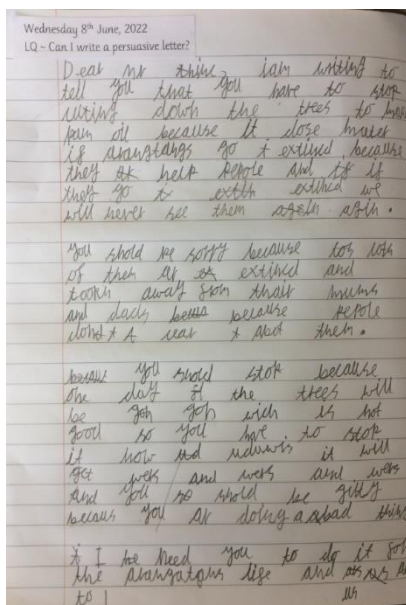 Wednesday 8th June, 2022
LQ – Can I write a persuasive letter?
Dear mr think, iam writing to
tell you that you have to stop
cuting down the trees to make
pam oil because it dose mater
if arangtangs go extined because
they help pepole and if
they go extined we
will never see them agin.
you shold be sorry because tos
of them ar extined and
tooken away from thair mums
and dads because pepole
dont cear abot them.
you shold stop because
one day if the trees will
be goh wich is not
good so you have to stop
it now it will
get wers and wers and wers
and you shold be gilty
becaus you ar doing a bad thing
I need you to do it for
the arangatangs life and
to us